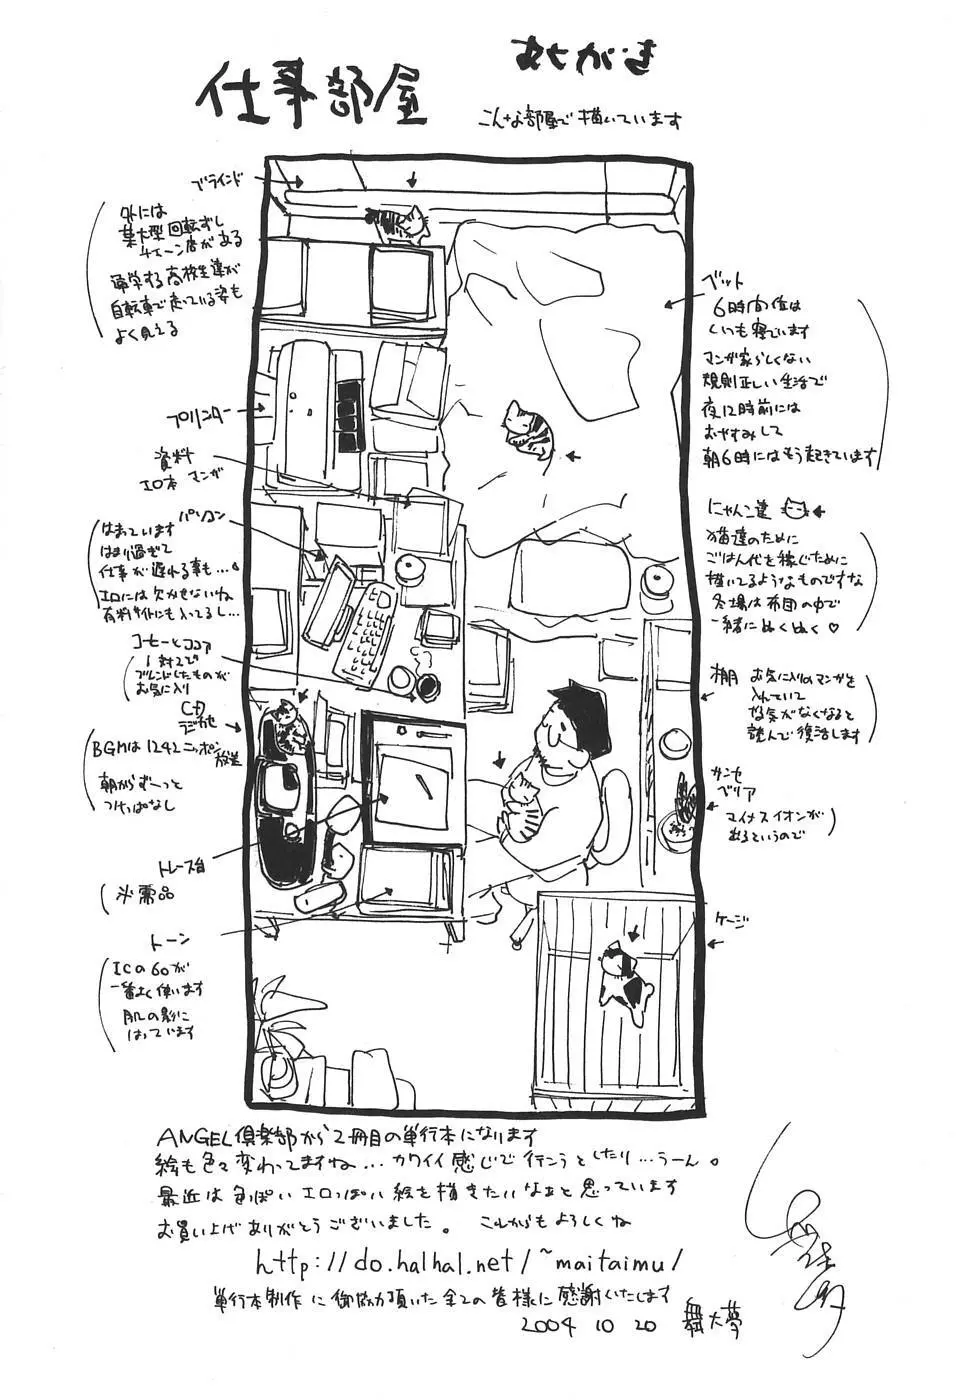 あとがき
仕事部屋
こんな部屋で描いています
ブラインド
外には
某大型回転ずし
チェーン店がある
通学する高校生達が
自転車で走っている姿も
よく見える
プリンター
資料
エロ本 マンガ
パソコン
はまっています
はまり過ぎて
仕事が遅れる事も…。
エロには欠かせないね
有料サイトにも入ってるし…
コーヒーとココア
1対2で
ブレンドしたものが
お気に入り
CD
ラジカセ
BGMは1242ニッポン
放送
朝からずーっと
つけっぱなし
トレース台
必需品
トーン
ICの60が
一番よく使います
肌の影に
はっています
ベット
6時間位は
いつも寝ています
マンガ家らしくない
規則正しい生活で
夜12時前には
おやすみして
朝6時にはもう起きています
にゃんこ達
猫達のために
ごはん代を稼ぐために
描いてるようなものですな
冬場は布団の中で
一緒にぬくぬく♡
棚 お気に入りのマンガを
入れていて
やる気がなくなると
読んで復活します
サンセ
ベリア
マイナスイオンが
出るというので
ケージ
ANGEL倶楽部から2冊目の単行本になります
絵も色々変わってますね…カワイイ感じで行こうとしたり…うーん。
最近は色っぽいエロっぽい絵を描きたいなぁと思っています
お買い上げありがとうございました。 これからもよろしくね
http://do.halhal.net/~maitaimu/
単行本制作に御協力頂いた全ての皆様に感謝いたします
2004 10 20 舞大夢